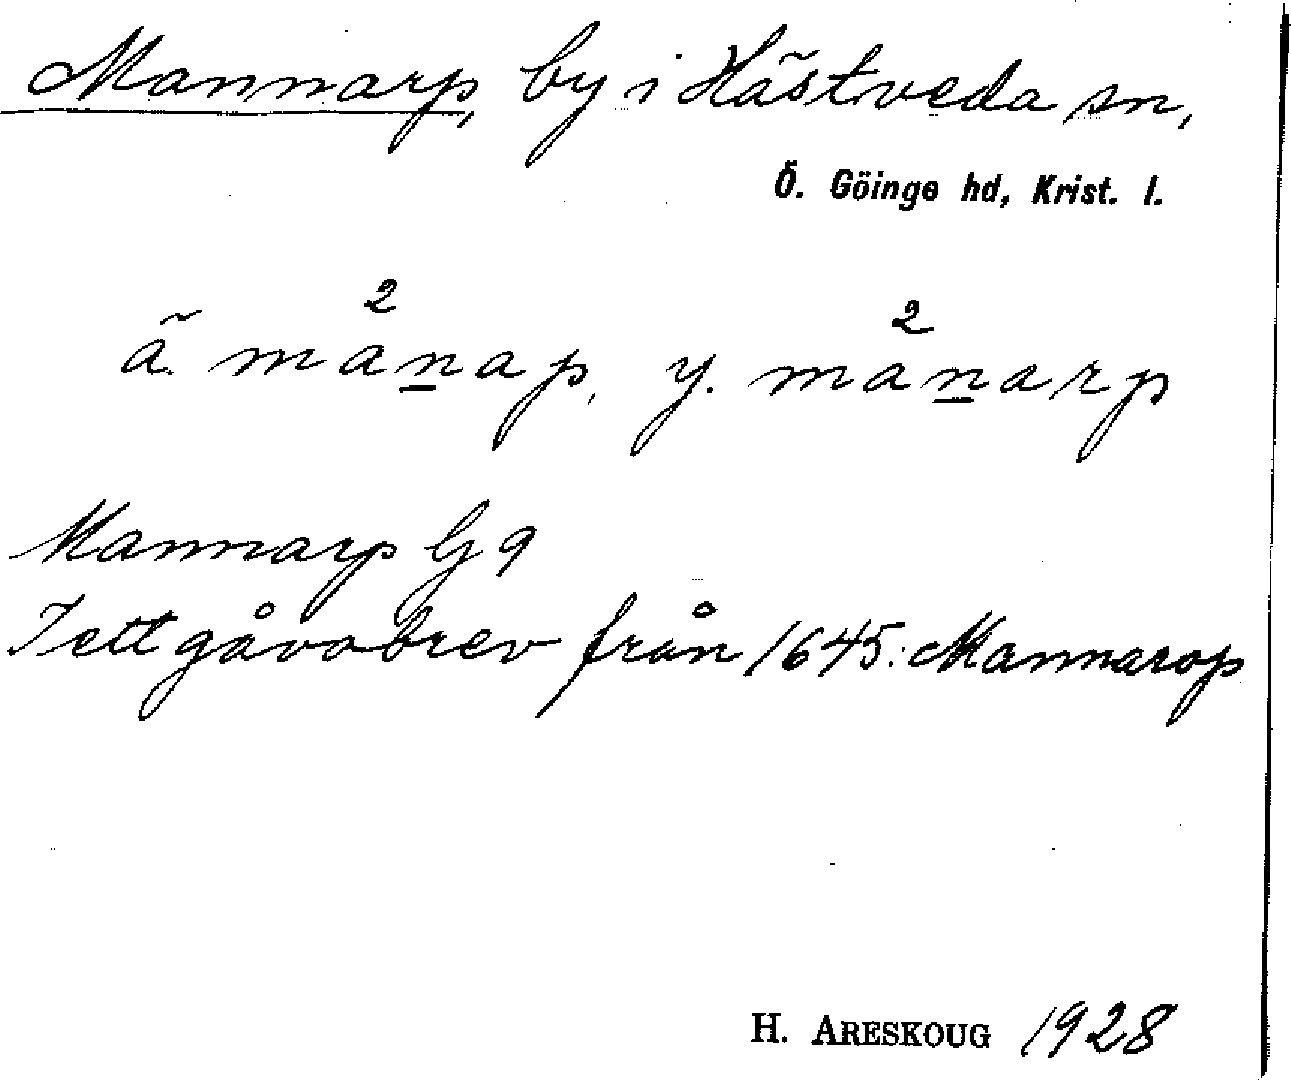 Mannarp, by i Hästveda sn,
Ö. Göinge hd, Krist. l.
ä. ma²n̲ap, y. ma²n̲arp
Mannarp G 9
I ett gåvobrev från 1645: Mannarop
H. ARESKOUG 1928